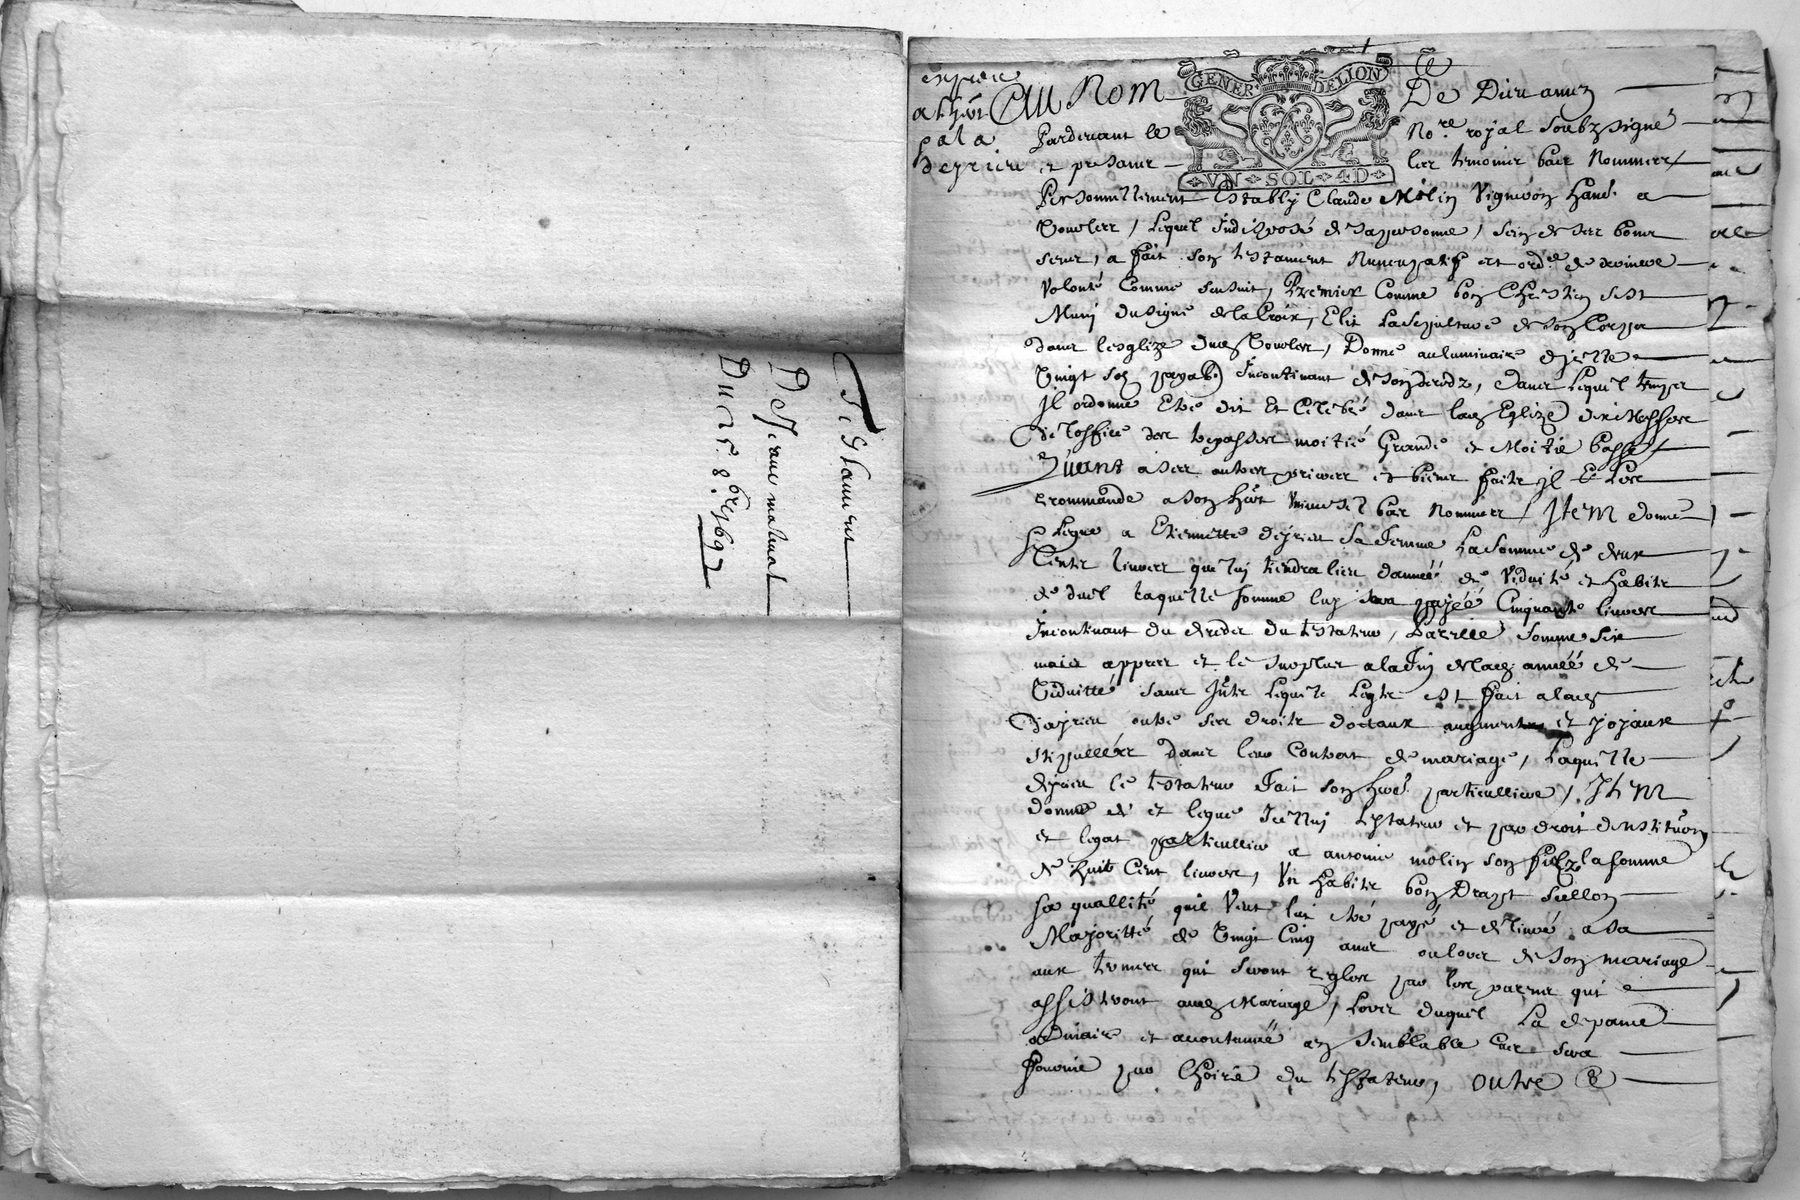 Testament
De Jeane matinat
Du 25e 8bre 1697
expediee
a lhoir
p la
deyrieu
GENER DELION
VN SOL 4D
Au Nom De Dieu amen
Pardevant le Nore royal soubzsigné
et presance les temoins bas Nommers
Personnellement Estably Claude Molin Vigneron habt a
lequel Indisposé de sa personne, sein de ses bons
sens, a fait son testament Nuncupatif et ordce de derniere
Volonté comme sensuit, Premier comme bon Chrestien sest
Muni du signe de la Croix, Elit La sepulture de son Corps
dans lesglize dud, Donne au luminaire dicelle
Vingt solz payab Incontinant de son decedz, dans Lequel temps
Il ordonne Etre dit Et Celebré dans lad Eglize dix Messes
de l'office des trepasses moitié Grande et Moitié basse
Quant a ses autres prieres et biens faits Il Les
recommande a son hert universel bas Nommers, Item donne
Legue a Etiennette deyrieu sa femme La somme de deux
Cents livres que luy tiendra lieu dannéé de Viduité et habits
de duel laquelle somme luy sera payéé Cinquante livres
Incontinant du decedz du testateur, Pareille somme six
mois appres et le surplus a la fin de lad annéé de
Viduitté sans Intz Lequel legtz est fait a lad
deyrieu outre ses droits dottaux augments et joyaux
stipullés dans leur Contrat de mariage, Laquelle
deyrieu le testateur fait son herd particulliere, Item
donne et legue Icelluy testateur et par droit dinstitution
et legat particullier a antoine molin son filz la somme
de huit Cent livres, Un habits bon Drapt sellon
sa quallité quil Veut luy etre payé et delivré a sa
Majoritté de Vingt Cinq ans ou lors de son mariage
aux termes qui seront regles par les parens qui
assisteront aud Mariage, Lors duquel La depance
ordinaire et accoutumé en semblable Cas sera
fournie par lhoirie du testateur, outre